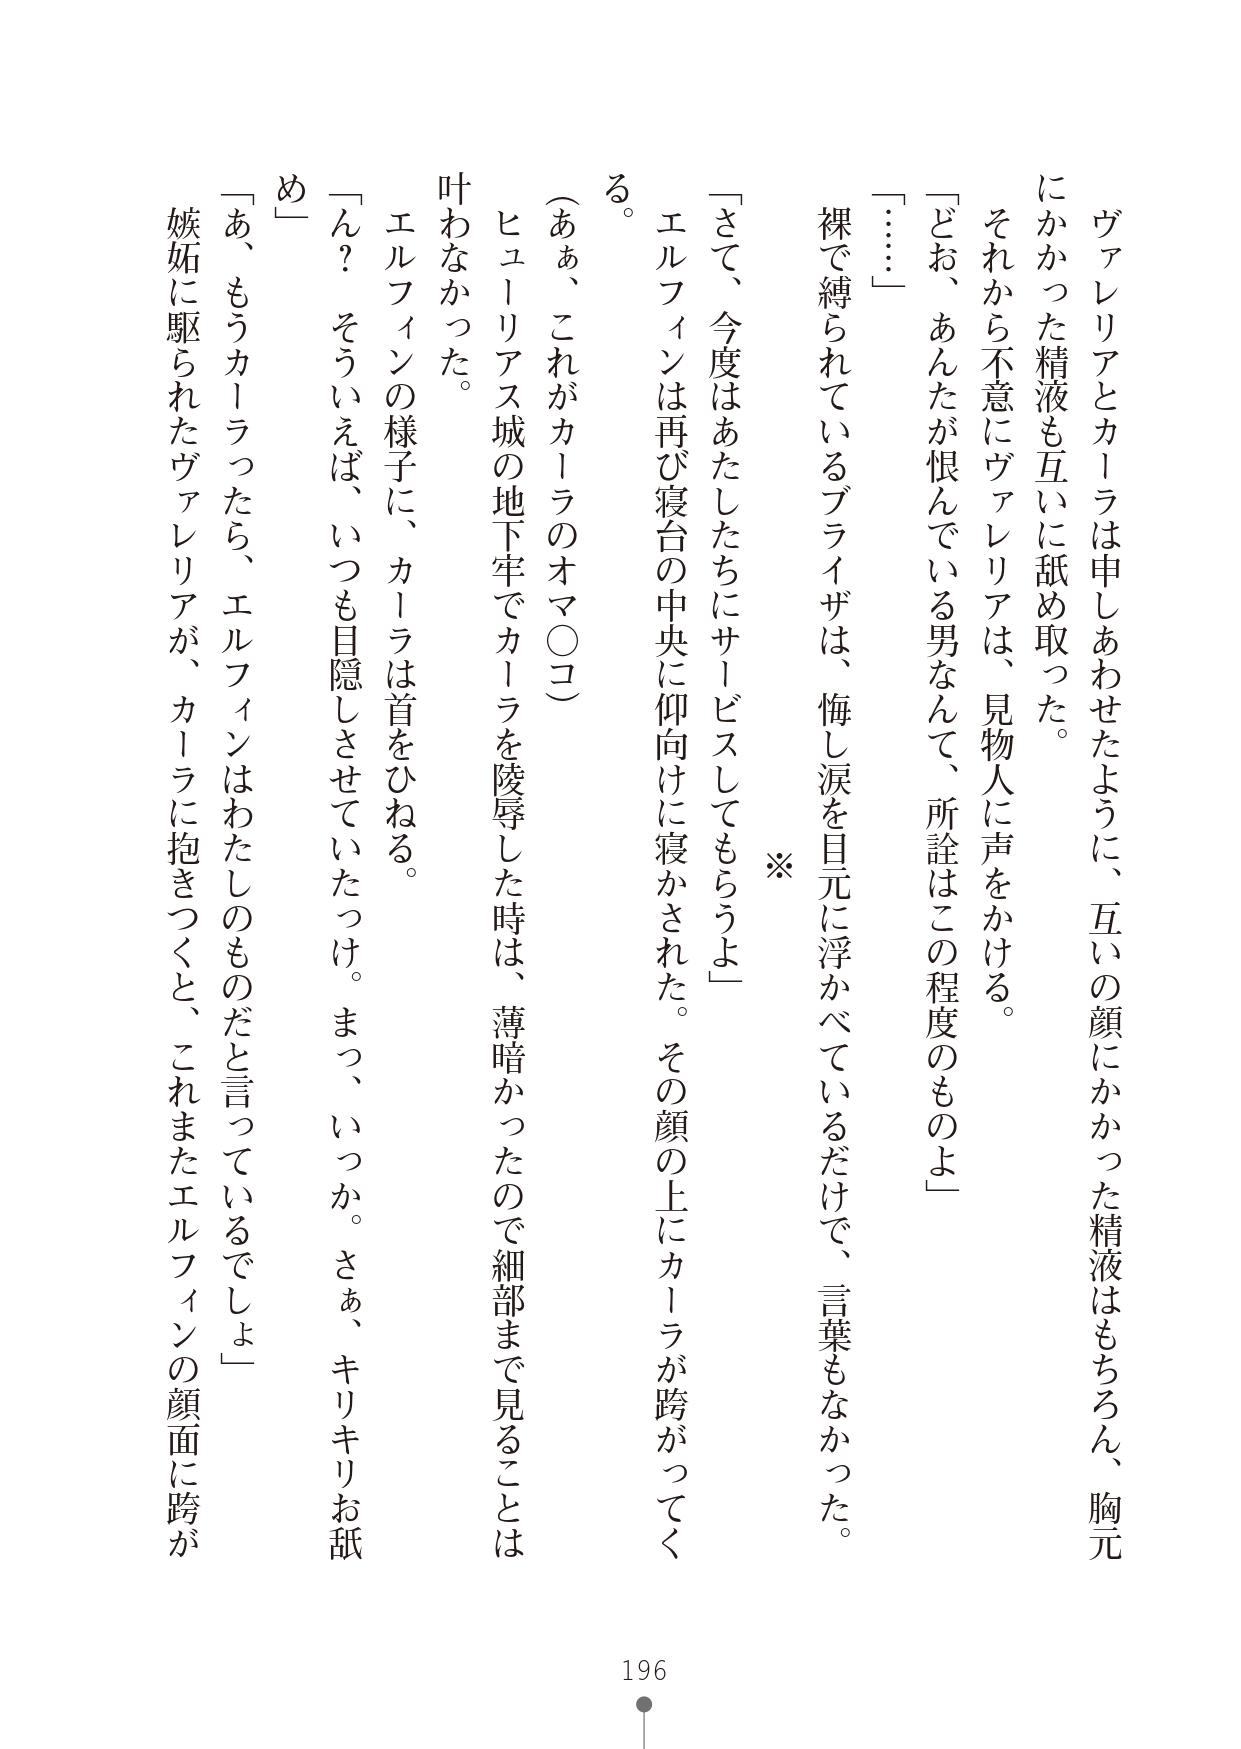 ヴァレリアとカーラは申しあわせたように、互いの顔にかかった精液はもちろん、胸元
にかかった精液も互いに舐め取った。
それから不意にヴァレリアは、見物人に声をかける。
「どお、あんたが恨んでいる男なんて、所詮はこの程度のものよ」
「……」
裸で縛られているブライザは、悔し涙を目元に浮かべているだけで、言葉もなかった。
※
「さて、今度はあたしたちにサービスしてもらうよ」
エルフィンは再び寝台の中央に仰向けに寝かされた。その顔の上にカーラが跨がってく
る。
（あぁ、これがカーラのオマ〇コ）
ヒューリアス城の地下牢でカーラを陵辱した時は、薄暗かったので細部まで見ることは
叶わなかった。
エルフィンの様子に、カーラは首をひねる。
「ん？　そういえば、いつも目隠しさせていたっけ。まっ、いっか。さぁ、キリキリお舐
め」
「あ、もうカーラったら、エルフィンはわたしのものだと言っているでしょ」
嫉妬に駆られたヴァレリアが、カーラに抱きつくと、これまたエルフィンの顔面に跨が
196